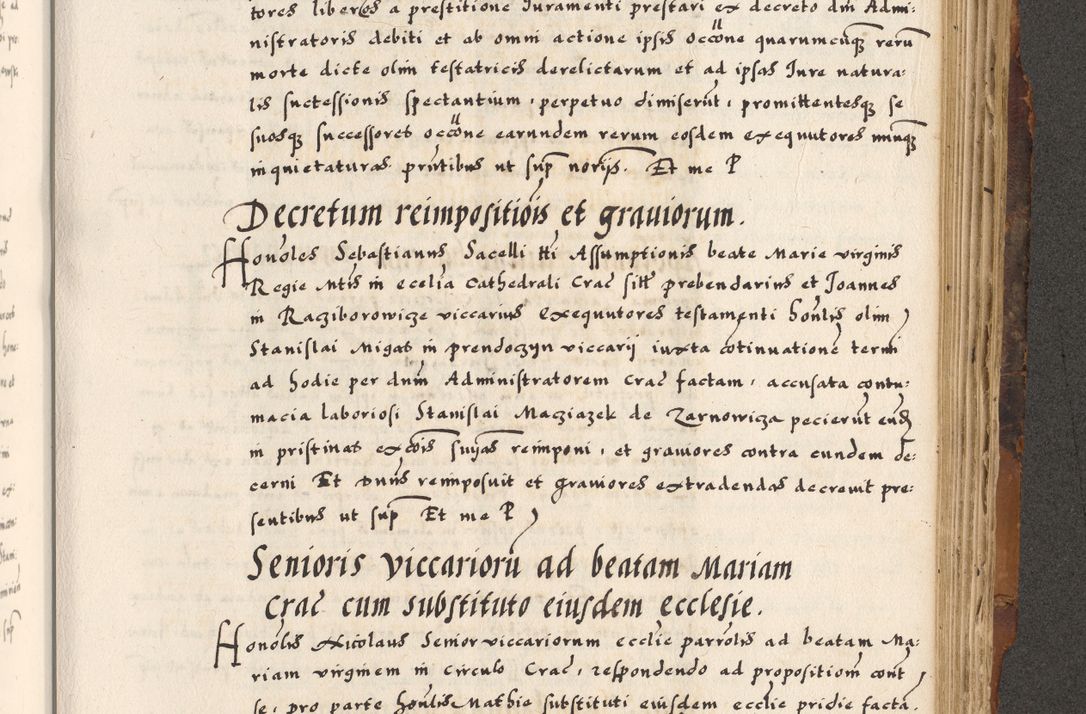 tores liberos a prestitione Iuramenti prestari ex decreto dni Admi:
nistratoris debiti et ab omni actione ipsis occone quarumcunq rerum
morte dicte olim testatricis derelictarum et ad ipsas Iure natura:
lis successionis spectantium, perpetuo dimiserut, promittentesq se
suosq successores occone earundem rerum eosdem exequutores nunq
inquietaturas pritibus ut sup noriis. Et me P
Decretum reimpositiois et grauiorum.
Honobles Sebastianus Sacelli tti Assumptionis beate Marie virginis
Regie Mtis in ecclia Cathedrali Crac sitt prebendarius et Joannes
in Racziborowicze viccarius Exequutores testamenti honlis olim
Stanislai Migas in prendoczyn viccarij iuxta cotinuatione termi
ad hodie per dnm Administratorem Crac factam, accusata contu:
macia laboriosi Stanislai Macziazek de Zarnowicza pecierut eund
in pristinas excois suyas reimponi, et grauiores contra eundem de:
cerni Et Dnus reimposuit et grauiores extradendas decreuit pre:
sentibus ut sup Et me P
Senioris viccarioru ad beatam Mariam
Crac cum substituto eiusdem ecclesie.
Honolis Nicolaus Senior viccariorum ecclie parrolis ad beatam Ma:
riam virginem in Circulo Crac, respondendo ad propositiom cont
se, pro parte honlis Mathie substituti eiusdem ecclie pridie facta.